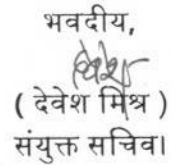 भवदीय,
( देवेश मिश्र )
संयुक्त सचिव।